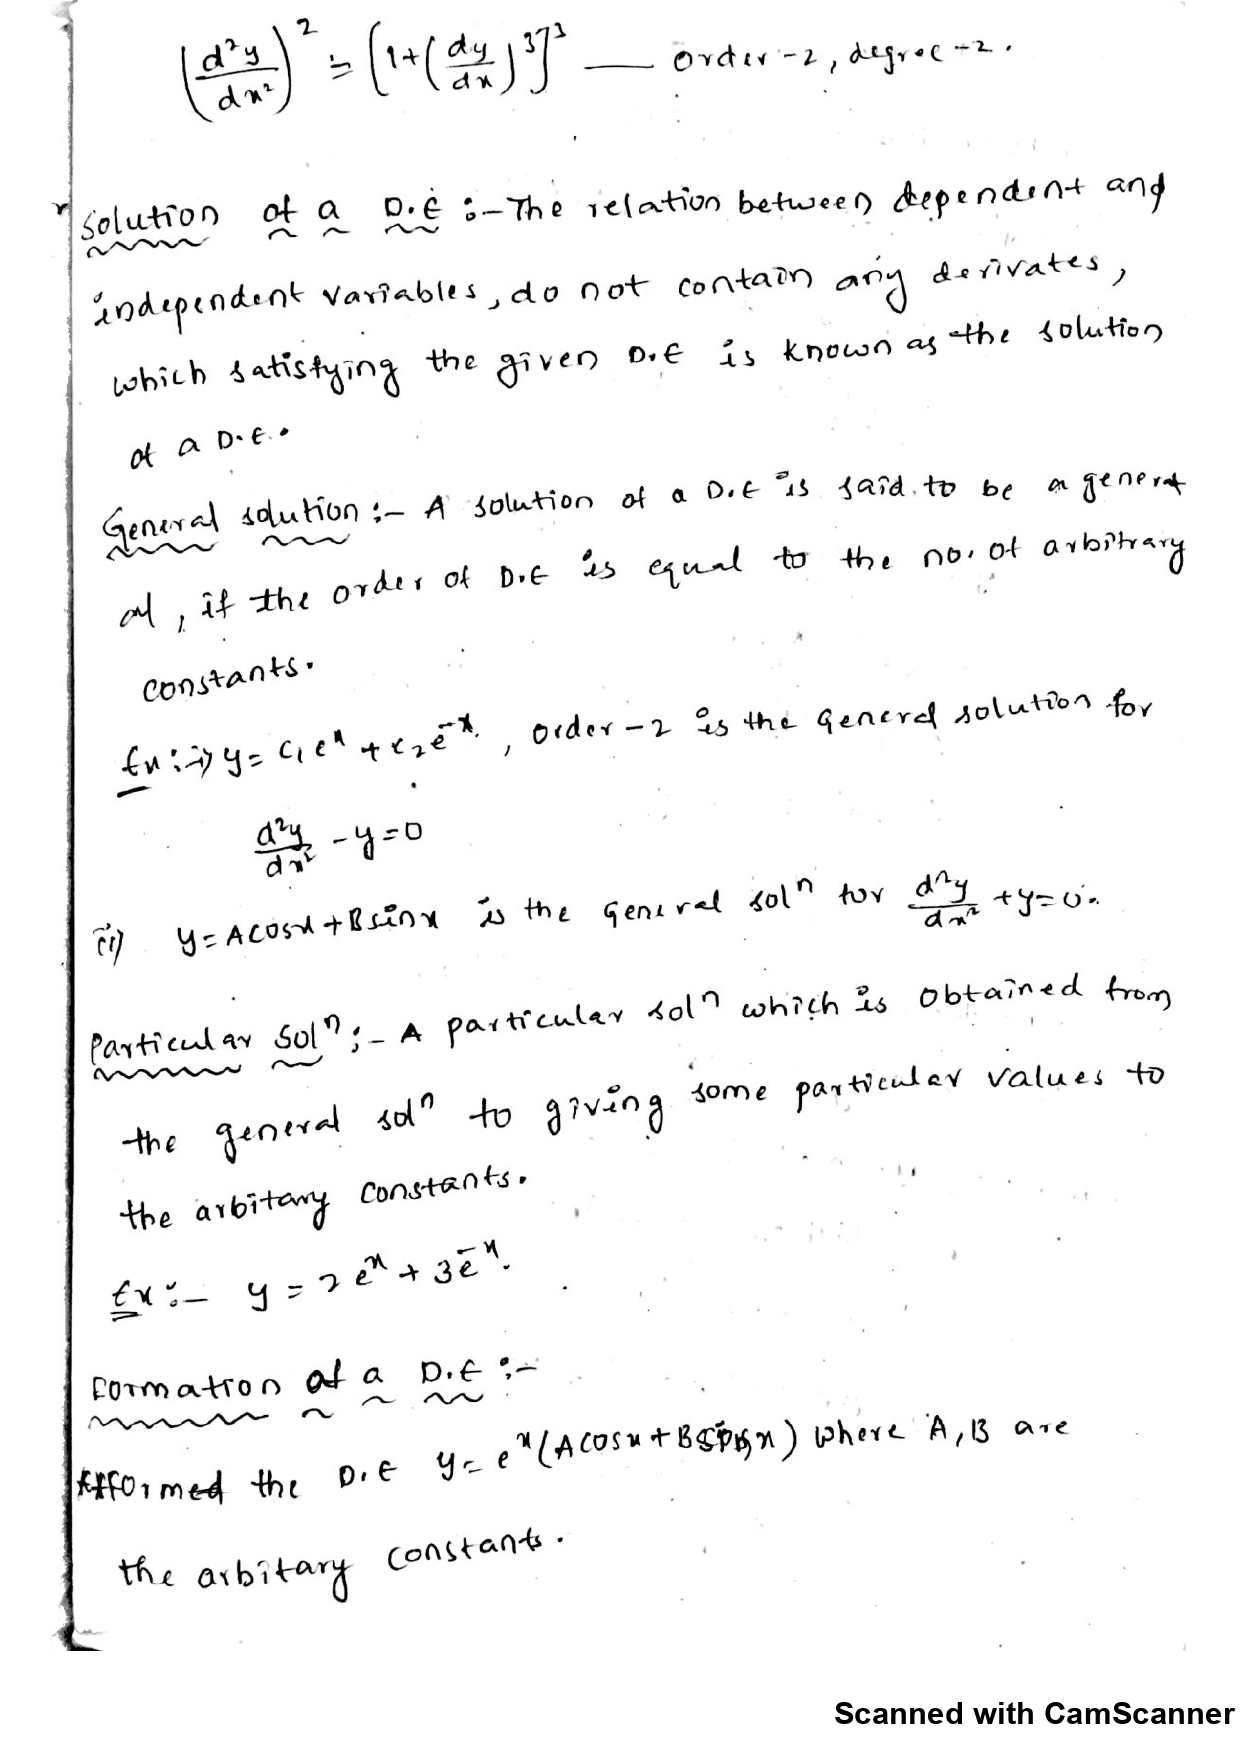 (d²y/dx²)² = [1+(dy/dx)³]³ — order-2, degree-2.
Solution of a D.E :- The relation between dependent and
independent variables, do not contain any derivates,
which satisfying the given D.E is known as the solution
of a D.E.
General solution :- A solution of a D.E is said to be a gener
al, if the order of D.E is equal to the no. of arbitrary
constants.
Ex: i) y = c₁eˣ + c₂e⁻ˣ, order-2 is the General solution for
d²y/dx² - y = 0
(ii) y = A cosx + B sinx is the general solⁿ for d²y/dx² + y = 0.
Particular Solⁿ :- A particular solⁿ which is obtained from
the general solⁿ to giving some particular values to
the arbitary constants.
Ex :- y = 2eˣ + 3e⁻ˣ.
Formation of a D.E :-
formed the D.E y = eˣ(A cosx + B sinx) where A, B are
the arbitary constants.
Scanned with CamScanner